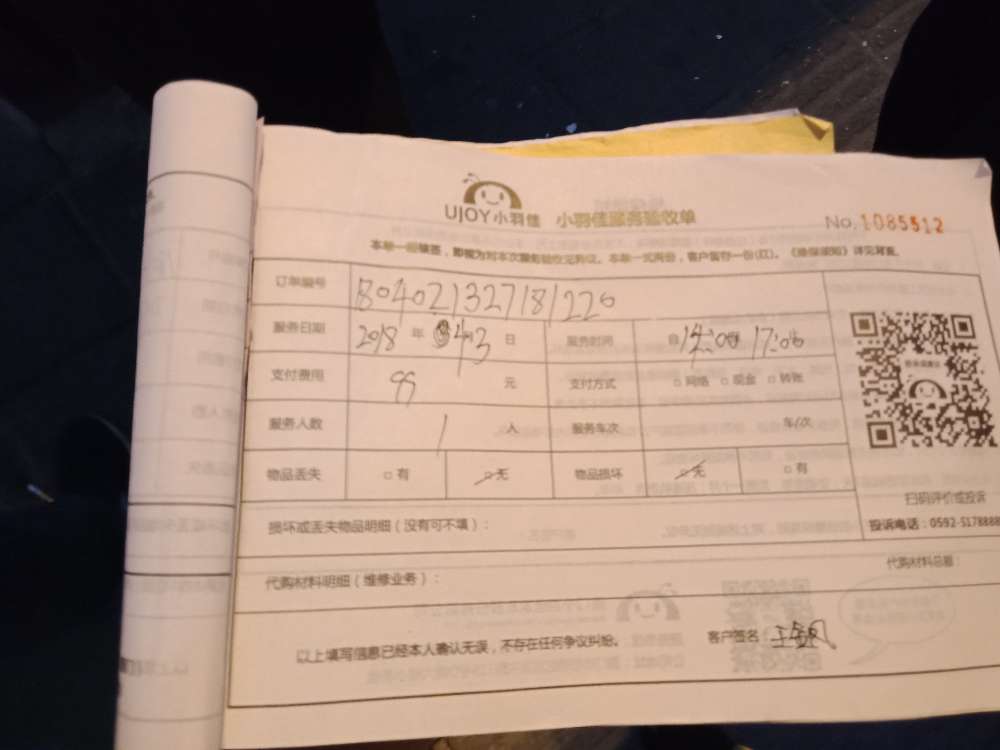 UJOY小羽佳 小羽佳服务验收单 No.1085512
本单一经填签,即视为对本次服务验收无异议。本单一式两份,客户留存一份(红)。《维保须知》详见背面。
订单编号 804021327181220
服务日期 2018 年 4 3 日 服务时间 自 14:00 17:00
支付费用 99 元 支付方式 □网络 □现金 □转账
服务人数 1 人 服务车次 车/次
物品丢失 □有 □无 物品损坏 □无 □有
扫码评价或投诉
损坏或丢失物品明细(没有可不填): 投诉电话:0592-5178888
代购材料明细(维修业务): 代购材料总额:
以上填写信息已经本人确认无误,不存在任何争议纠纷。 客户签名: